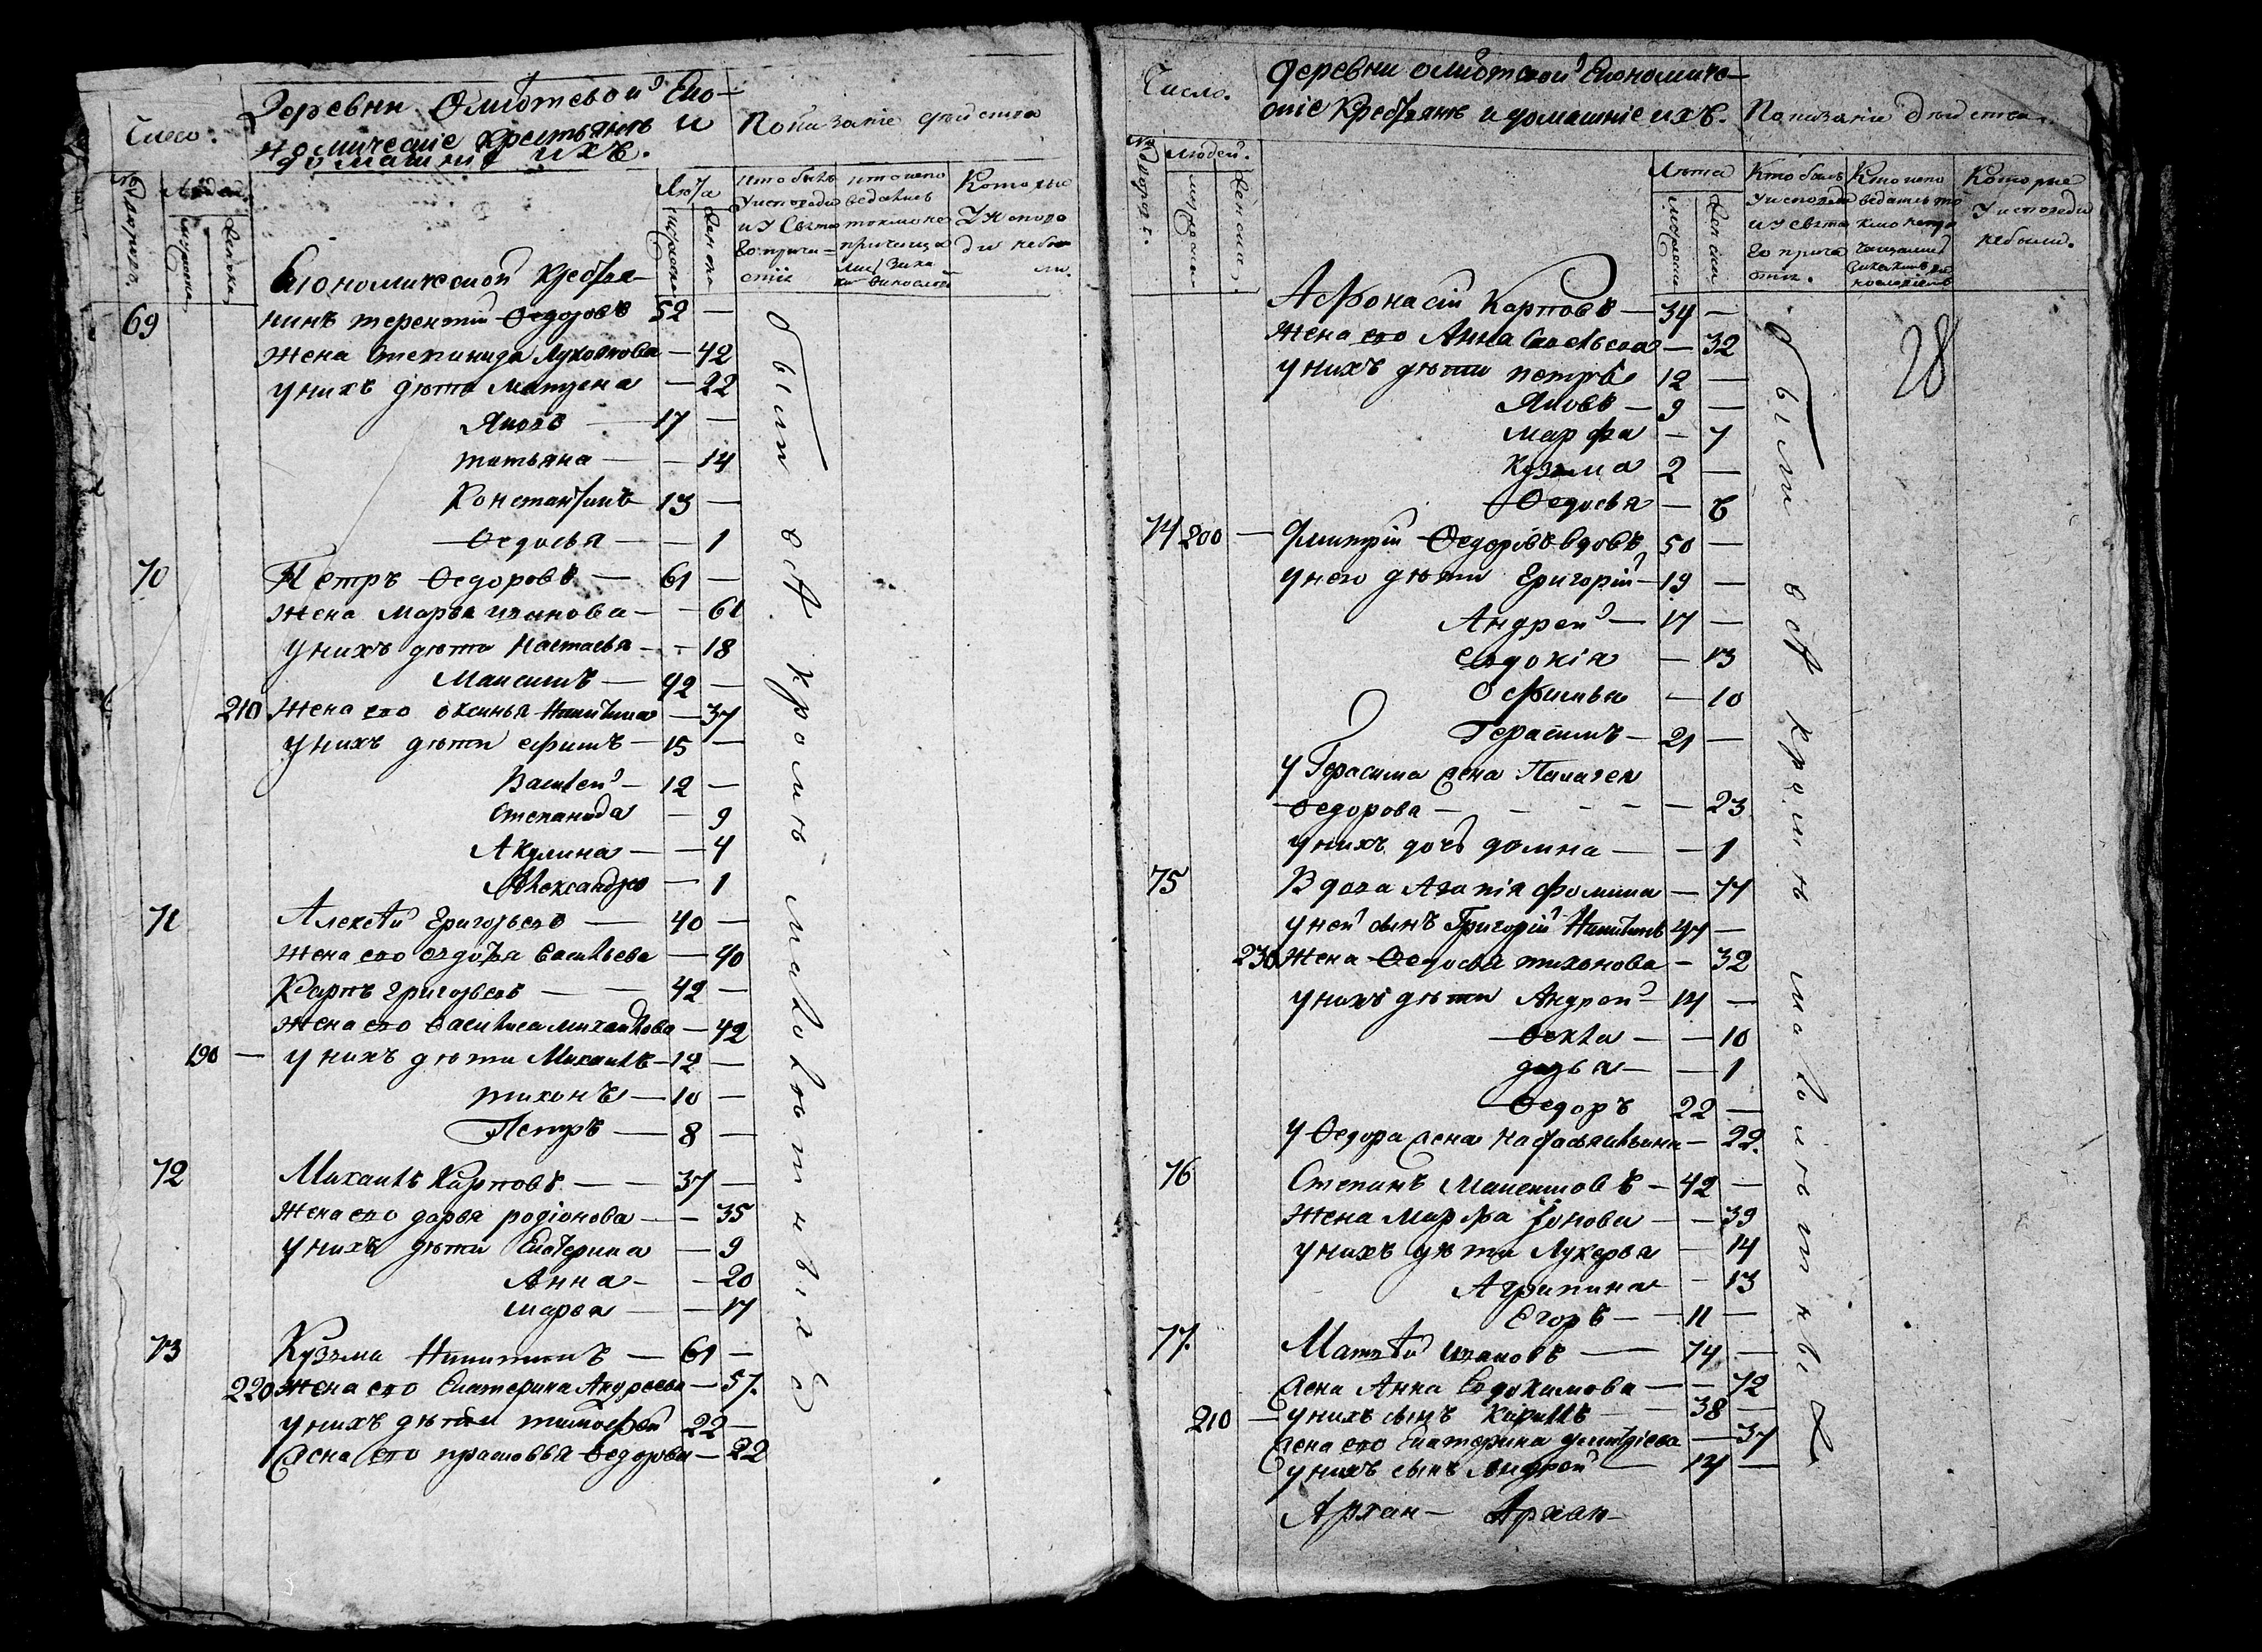 Число.
Деревни Еко-
номическіе крестьянъ и
домашніе ихъ.
Показаніе действа
№ дворовъ.
Людей.
мужеска
женска
Лѣта
мужеска
женска
Кто былъ
у исповеди
и у Святаго
причастія
Которые
у испове
ди не бы
ли.
Економической крестья-
69 нинъ терентій Ѳедоровъ 52 —
жена Степанида — 42
у нихъ дѣти Матрена — 22
Яковъ — 17 —
татьяна — — 14
Константинъ 13 —
Ѳедосья — — 1
70 Петръ Ѳедоровъ — 61 —
жена Марья иванова — — 61
у нихъ дѣти Настасья — — 18
Максимъ — 42 —
210 жена его Никитина — 37
у нихъ дѣти ефимъ — 15 —
Василей — 12 —
Степанида — 9
Акулина — — 4
Александра — 1
71 Алексѣй Григорьевъ — 40 —
жена его Васильева — 40
Карпъ григорьевъ — — 42 —
жена его Василиса михаилова — 42
190 — у нихъ дѣти Михаилъ — 12 —
тихонъ — 10 —
Петръ — 8 —
72 Михаилъ Карповъ — — 37 —
жена его дарья родіонова — — 35
у нихъ дѣти Екатерина — 9
Анна — — 20
марья — — 17
73 Кузьма Никитинъ — 61 —
220 жена его Екатерина Андреева — 57.
у нихъ дѣти тимофей 22 —
жена его прасковья Ѳедорова — 22
быи всѣ кромѣ малолѣтныхъ
Число.
деревни Економиче-
скіе крестьянъ и домашніе ихъ.
Показаніи действа.
№ дворовъ.
людей.
мужеска
женска
Лѣта
мужеска
женска
Кто былъ
у исповеди
и у свята
го прича
стія.
Которые
у исповеди
не были.
Афонасій Карповъ — 34 —
жена его Анна — 32
у нихъ дѣти петръ 12 —
Яковъ — 9 —
марфа — 7
кузма 2 —
Ѳедосья — 6
28
74 200 — Дмитрій Ѳедоровъ вдовъ 50 —
у него дѣти Григорій — 19 —
Андрей — 17 —
евдокія — 13
Офимья — 10
Герасимъ — 21 —
у Герасима жена Палагея
Ѳедорова — — — — — 23
у нихъ дочь домна — — 1
75 Вдова Фомина — 77
у ней сынъ Григорій Никитинъ 47 —
230 жена Ѳедосья тихонова — 32
у нихъ дѣти Андрей — 14 —
Ѳекла — — 10
дарья — — 1
Ѳедоръ 22 —
у Ѳедора жена — 22.
76 Степанъ Максимовъ — 42 —
жена марфа — — 39
у нихъ дѣти Лукерья — 14
Агрипина — 13
Егоръ — 11 —
77. Матвѣй ивановъ — 74 —
жена Анна Евдокимова — — 72
210 — у нихъ сынъ Кирилъ — 38 —
жена его Екатерина дмитріева — 37
у нихъ сынъ Андрей — 14 —
Архан — Архан —
были всѣ кромѣ малолѣтныхъ